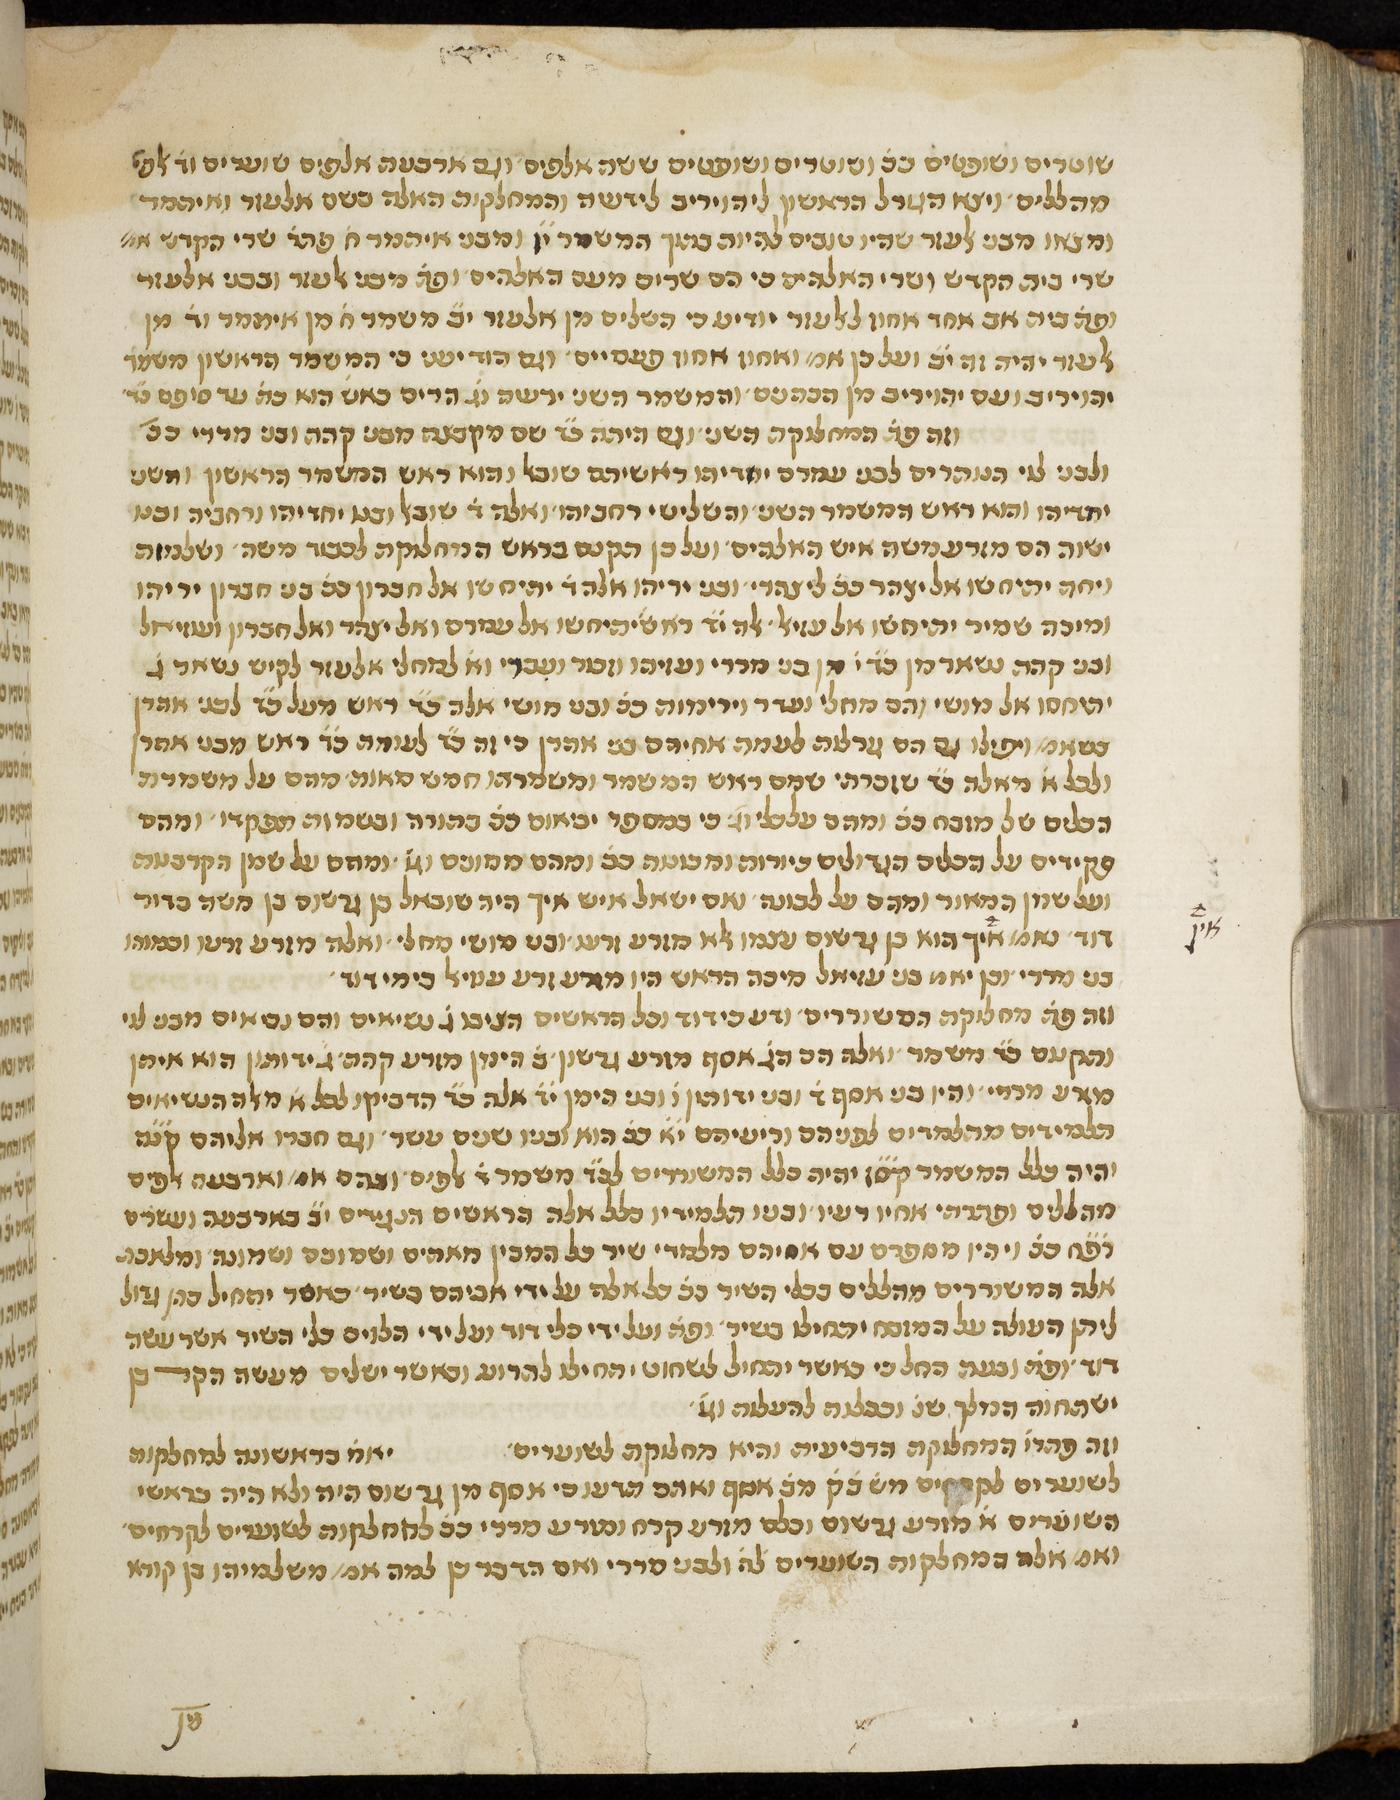 שוטרים ושופטים ככ ושוטרים ושופטים ששה אלפים וגם ארבעה אלפים שוערים וד לפי
מהללים ויצא הגורל הראשון ליהויריב לידעיה והמחלקות האלה בשם אלעזר ואיתמר
ומצאו מבני לעזר שהיו טובים להיות בתוך המשמר יו ומבני איתמר ח פתר שרי הקדש אמ
שרי בית הקדש ושרי האלהים כי הם שרים מעם האלהים ופר מבני לעזר ובבני אלעזר
ופר בית אב אחד אחוז ללעזר יודיע כי השלים מן אלעזר יב משמר ח מן איתמר וד מן
לעזר יהיה זה יב ועל כן אמ ואחוז אחוז פעמיים וגם הודיענו כי המשמר הראשון משמר
יהויריב ועם יהויריב מן הכהנים והמשמר השני ידעיה וג הרים כאש הוא כת עד סופם כד
וזה פר המחלוקת השני וגם היתה כד שם מקבצה מבני קהת ובני מררי ככ
ולבני לוי הנותרים לבני עמרם יחדיהו ראשיהם שובל והוא ראש המשמר הראשון והשני
יחדיהו והוא ראש המשמר השני והשלישי רחביהו ואלה ד שובל ובנו יחדיהו ורחביה ובנו
ישיה הם מזרע משה איש האלהים ועל כן הקדם בראש המחלוקת לכבוד משה ושלמות
ויחת יתיחשו אל יצהר ככ ליצהרי ובני יריהו אלה ד יתיחשו אל חברון ככ בני חברון יריהו
ומיכה שמיר יתיחשו אל עזיאל לה יד ראש יתיחשו אל עמרם ואל יצהר ואל חברון ועזיאל
ובני קהת נשאר מן כד י מן בני מררי ועזיהו וזכור ועברי וא למחלי אלעזר לקיש נשאר ג
יתיחסו אל מושי והם מחלי ועדר וירימות ככ ובני מושי אלה כד ראש מעל כד לבני אהרן
כשאמ ויפילו גם הם גורלות לעמת אחיהם בני אהרן כי זה כד לעומת כד ראש מבני אהרן
ולכל א מאלה כד שזכרתי שמם ראש המשמר ומשמרתו חמש מאות מהם על משמרת
הכלים של מזבח ככ ומהם על כלי וג כי במספר יביאום ככ בתורה ובשמות תפקדו ומהם
פקידים על הכלים הגדולים כיורות ומכונות ככ ומהם ממונים וג ומהם על שמן הקרבנות
ועל שמן המאור ומהם על לבונה ואם ישאל איש איך היה שובאל בן גרשום בן משה בדור
דוד נאמ איך הוא בן גרשום עצמו לא מזרע זרעו ובני מושי מחלי ואלה מזרע זרעו וכמוהו
בני מררי וכן יאמ בני עזיאל מיכה הראש היו מזרע זרע עזיאל בימי דוד
וזה פר מחלוקת המשוררים ודע כי דוד וכל הראשים הציבו ג נשיאים והם נשיאים מבני לוי
והקימם כד משמר ואלה הם הג אסף מזרע גרשון ב הימן מזרע קהת ג ידותון הוא איתן
מזרע מררי והיו בני אסף ד ובני ידותון ו ובני הימן יד אלה כד הדביקו לכל א מאלה הנשיאים
תלמידים מהלמדים לפניהם וריעיהם יא ככ הוא ובניו שנים עשר וגם חברו אליהם קנה
והיה כלל המשמר קסז יהיה כלל המשוררים לכד משמר ד לפים ובהם אמ וארבעה אלפים
מהללים ופתרתי אחיו רעיו ובניו תלמידיו כלל אלה הראשים הנגידים יב בארבעה ועשרים
רפח ככ ויהיו מספרם עם אחיהם מלמדי שיר כל המבין מאתים ושמונים ושמונה ומלאכת
אלה המשוררים מהללים בכלי השיר ככ כל אלה על ידי אביהם בשיר כאשר יתחיל כהן גדול
ליתן העולה על המזבח יתחילו בשיר ופר ועל ידי כלי דוד ועל ידי הלוים כלי השיר אשר עשה
דוד ופר ובעת החל כי כאשר יתחיל לשחוט יתחילו להריע וכאשר ישלים מעשה הקר בן
ישתחוה המלך שנ וככלות להעלות וג
וזה פתרו המחלוקת הרביעית והיא מחלוקת לשוערים יאמ בראשונה למחלקות
לשוערים לקרחים מש כק מב אסף ואתם תדעו כי אסף מן גרשום היה ולא היה בראשי
השוערים א מזרע גרשום וכלם מזרע קרח ומזרע מררי ככ למחלקות לשוערים לקרחים
ואמ אלה במחלקות השוערים לה ולבני מררי ואם הדבר כן למה אמ משלמיהו בן קורא
אין